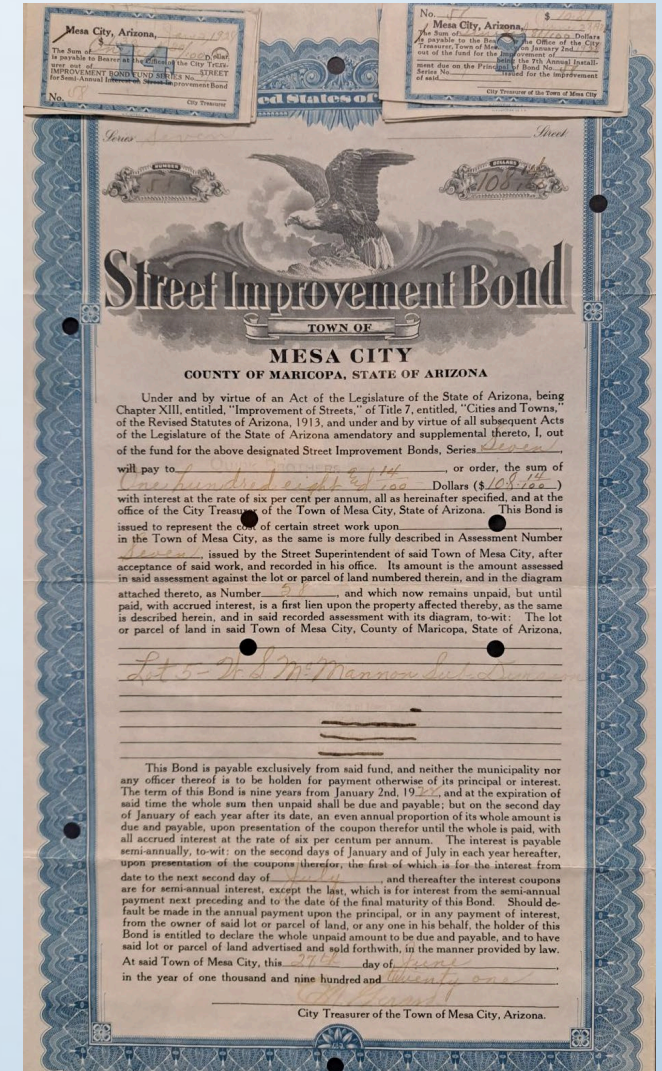 Mesa City, Arizona,
The Sum of Dollars
is payable to Bearer at the Office of the City Treas-
urer out of STREET
IMPROVEMENT BOND FUND SERIES No.
for Semi-Annual Interest on Street Improvement Bond
No. 58
City Treasurer
No. 58 $
Mesa City, Arizona,
The Sum of Dollars
is payable to the Bearer at the Office of the City
Treasurer, Town of Mesa on January 2nd,
out of the fund for being the 7th Annual Install-
ment due on the Principal of Bond No. 58
Series No. issued for the improvement
of said
City Treasurer of the Town of Mesa City
ed States of
Series Seven Street
NUMBER DOLLARS
58 108 14/100
Street Improvement Bond
TOWN OF
MESA CITY
COUNTY OF MARICOPA, STATE OF ARIZONA
Under and by virtue of an Act of the Legislature of the State of Arizona, being
Chapter XIII, entitled, "Improvement of Streets," of Title 7, entitled, "Cities and Towns,"
of the Revised Statutes of Arizona, 1913, and under and by virtue of all subsequent Acts
of the Legislature of the State of Arizona amendatory and supplemental thereto, I, out
of the fund for the above designated Street Improvement Bonds, Series Seven,
will pay to , or order, the sum of
One hundred eight & 14/100 Dollars ($108 14/100)
with interest at the rate of six per cent per annum, all as hereinafter specified, and at the
office of the City Treasurer of the Town of Mesa City, State of Arizona. This Bond is
issued to represent the cost of certain street work upon ,
in the Town of Mesa City, as the same is more fully described in Assessment Number
Seven, issued by the Street Superintendent of said Town of Mesa City, after
acceptance of said work, and recorded in his office. Its amount is the amount assessed
in said assessment against the lot or parcel of land numbered therein, and in the diagram
attached thereto, as Number 58, and which now remains unpaid, but until
paid, with accrued interest, is a first lien upon the property affected thereby, as the same
is described herein, and in said recorded assessment with its diagram, to-wit: The lot
or parcel of land in said Town of Mesa City, County of Maricopa, State of Arizona,
Lot 5 - W S McMannon Sub-Division
This Bond is payable exclusively from said fund, and neither the municipality nor
any officer thereof is to be holden for payment otherwise of its principal or interest.
The term of this Bond is nine years from January 2nd, 1922, and at the expiration of
said time the whole sum then unpaid shall be due and payable; but on the second day
of January of each year after its date, an even annual proportion of its whole amount is
due and payable, upon presentation of the coupon therefor until the whole is paid, with
all accrued interest at the rate of six per centum per annum. The interest is payable
semi-annually, to-wit: on the second days of January and of July in each year hereafter,
upon presentation of the coupons therefor, the first of which is for the interest from
date to the next second day of July, and thereafter the interest coupons
are for semi-annual interest, except the last, which is for interest from the semi-annual
payment next preceding and to the date of the final maturity of this Bond. Should de-
fault be made in the annual payment upon the principal, or in any payment of interest,
from the owner of said lot or parcel of land, or any one in his behalf, the holder of this
Bond is entitled to declare the whole unpaid amount to be due and payable, and to have
said lot or parcel of land advertised and sold forthwith, in the manner provided by law.
At said Town of Mesa City, this 27th day of June,
in the year of one thousand and nine hundred and twenty one
City Treasurer of the Town of Mesa City, Arizona.